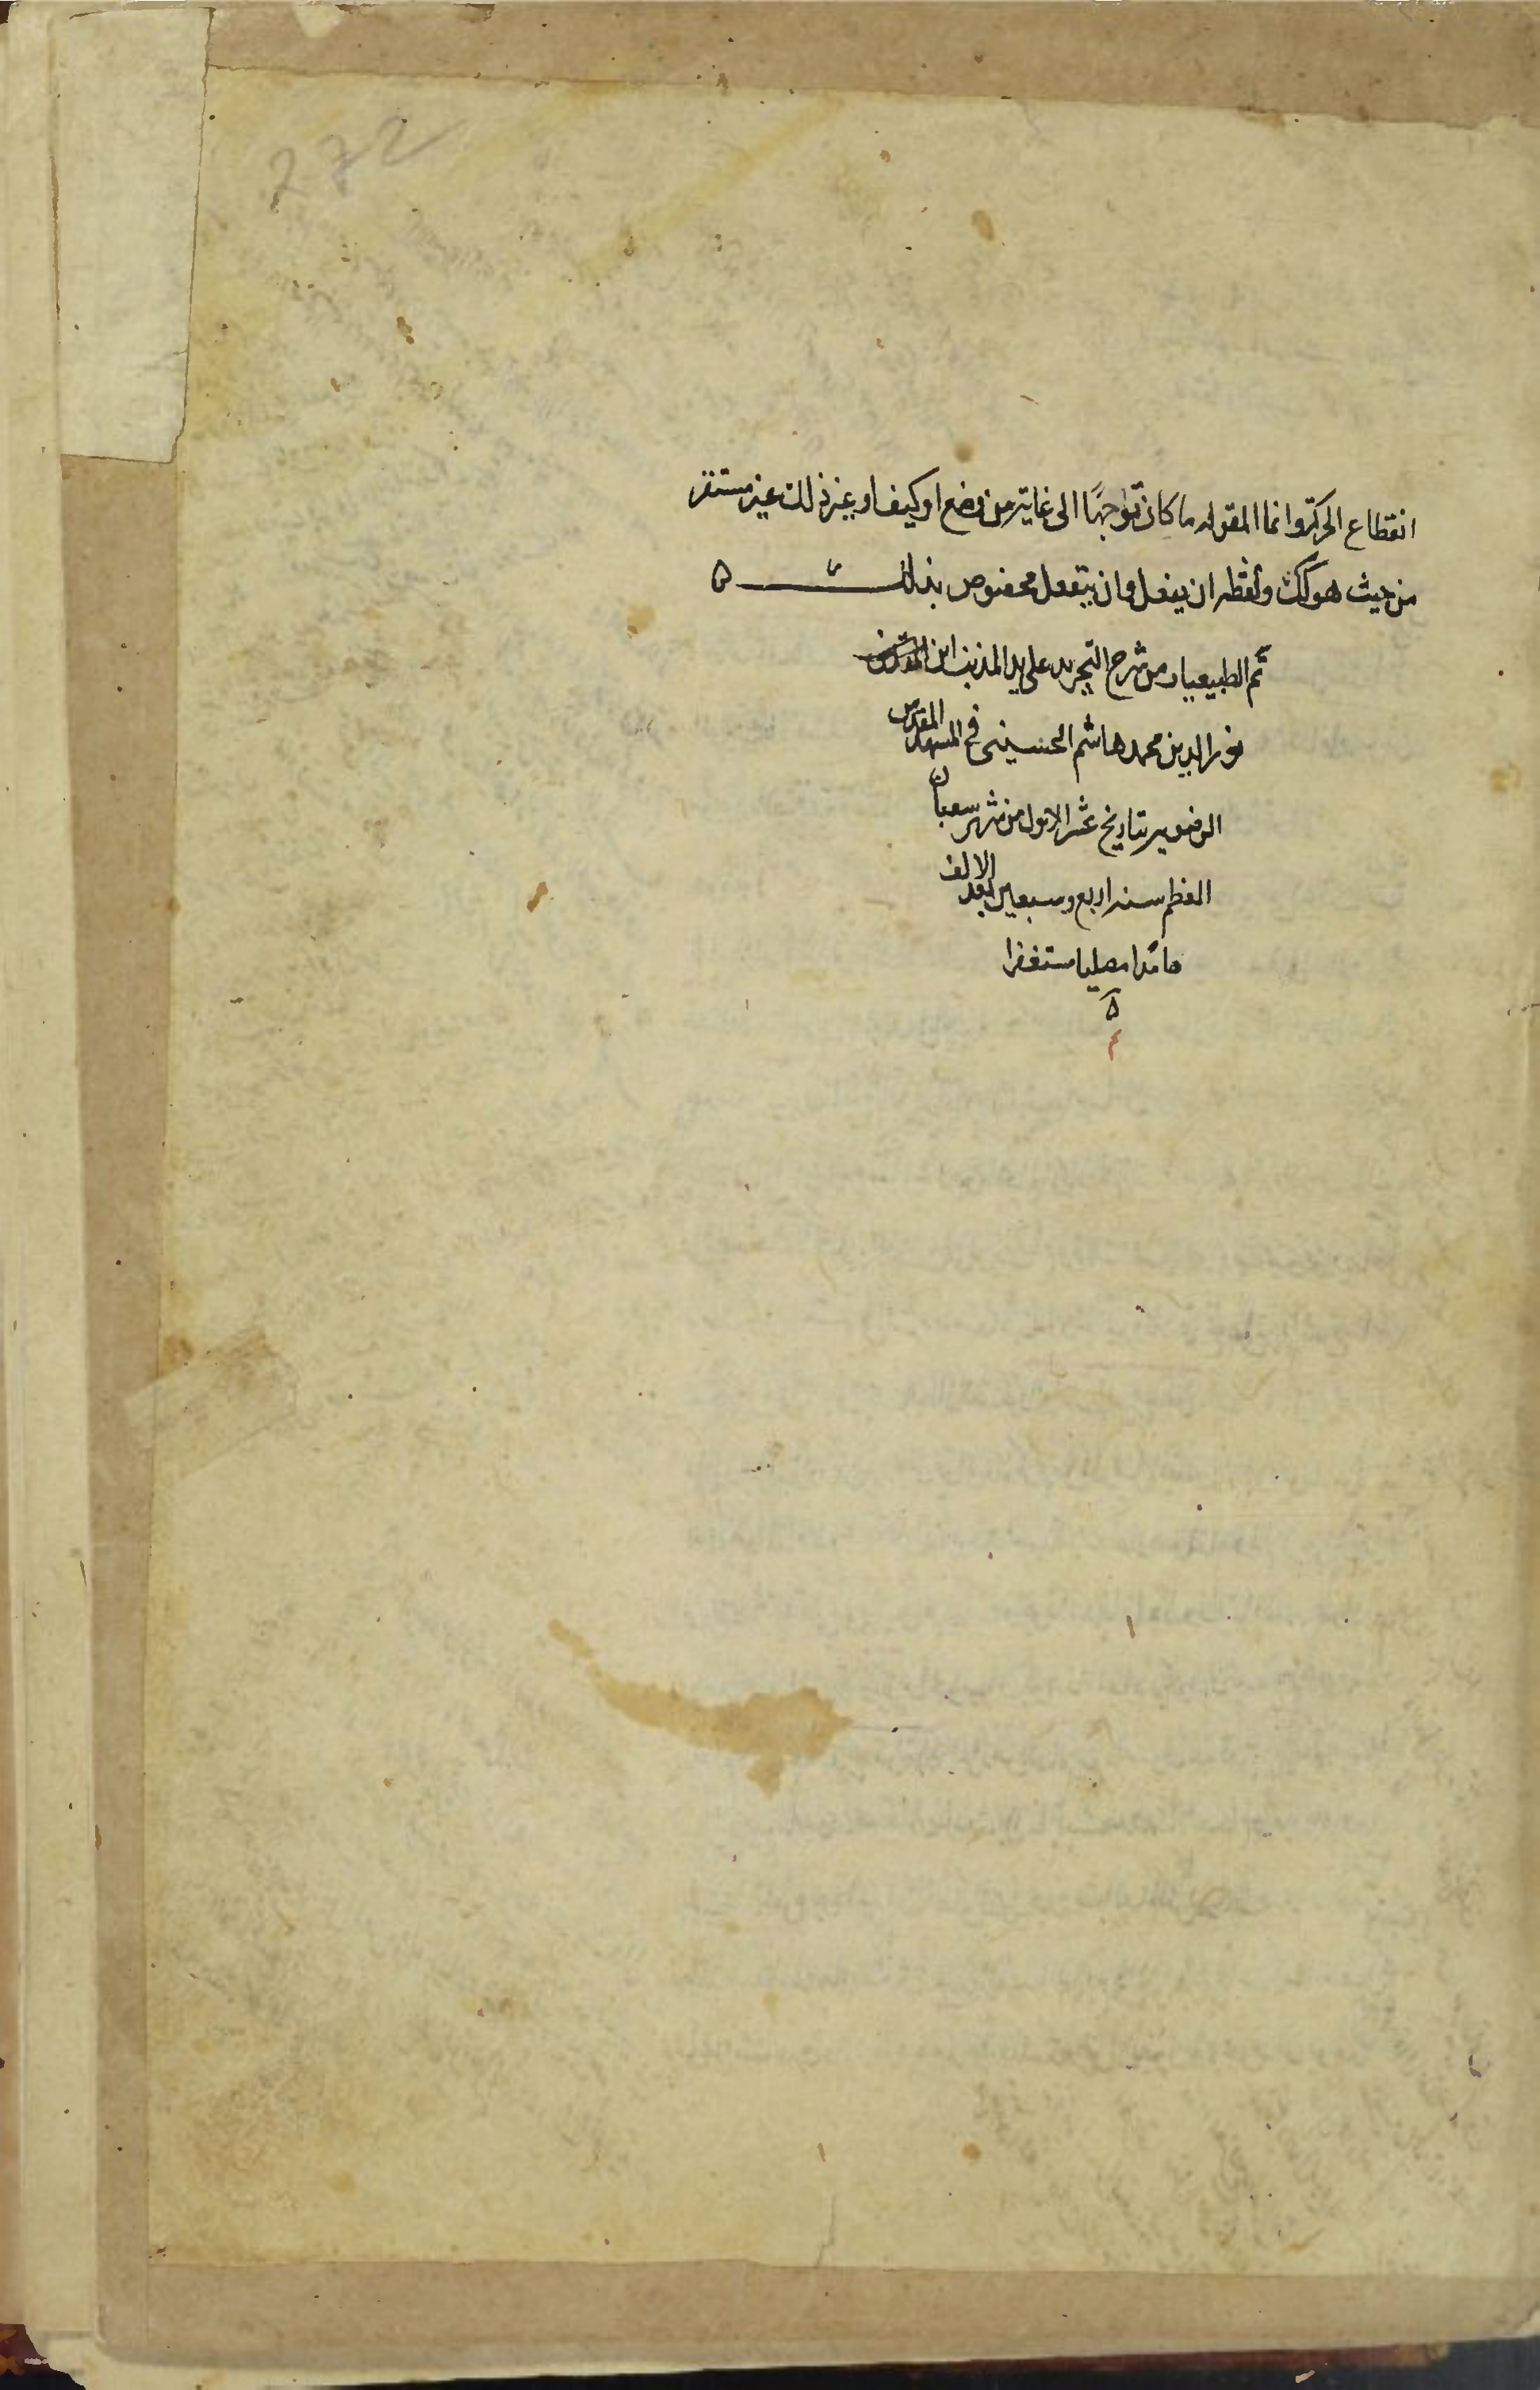 272
انقطاع الحركة وانما المقوله ما كان توجها الى غاية من وضع او كيف او غير ذلك غير مستقر
من حيث هو كك ولفظه ان يفعل وان ينفعل مخصوص بذلك
تم الطبيعيات من شرح التجريد على يد المذنب ابن
نور الدين محمد هاشم الحسيني في المشهد المقدس
الرضويه بتاريخ عشر الاول من شهر شعبان
المعظم سنه اربع وسبعين بعد الالف
حامدا مصليا مستغفرا